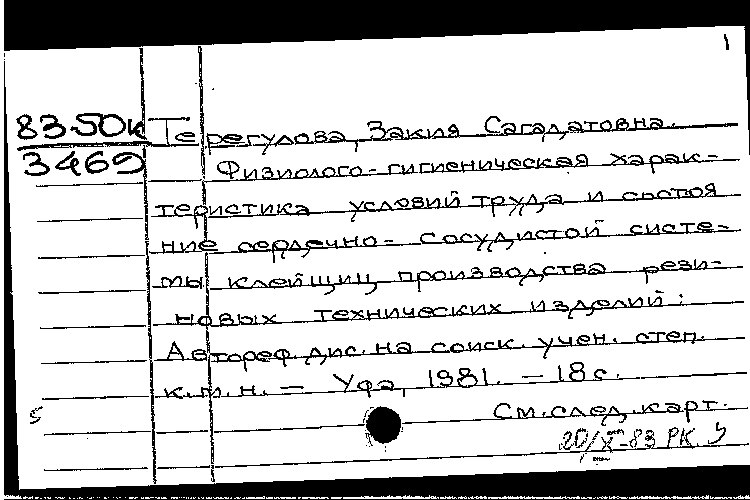 1
83-50к Терегулова, Закия Сагадатовна.
3469 Физиолого-гигиеническая харак-
теристика условий труда и состоя
ние сердечно-сосудистой систе-
мы клейщиц производства рези-
новых технических изделий:
Автореф. дис. на соиск. учен. степ.
к.м.н. — Уфа, 1981. — 18 с.
5 См. след. карт.
20/X-83 РК